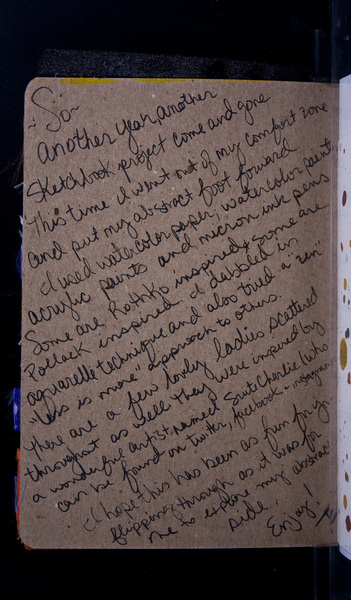 ~ So ~
another year, another
Sketchbook project come and gone
This time I went out of my comfort zone
and put my abstract foot forward.
I used watercolor paper, watercolor paint,
acrylic paints and micron ink pens
Some are Rothko inspired & some are
Pollack inspired. I dabbled in
aquarelle technique and also tried a "zen"
"less is more" approach to others.
There are a few lovely ladies scattered
throughout as well. They were inspired by
a wonderful artist, named Suite Charlie (who
can be found on twitter, facebook &
I hope this has been as fun for you
flipping through as it was for
me to explore my abstract
side.
Enjoy!